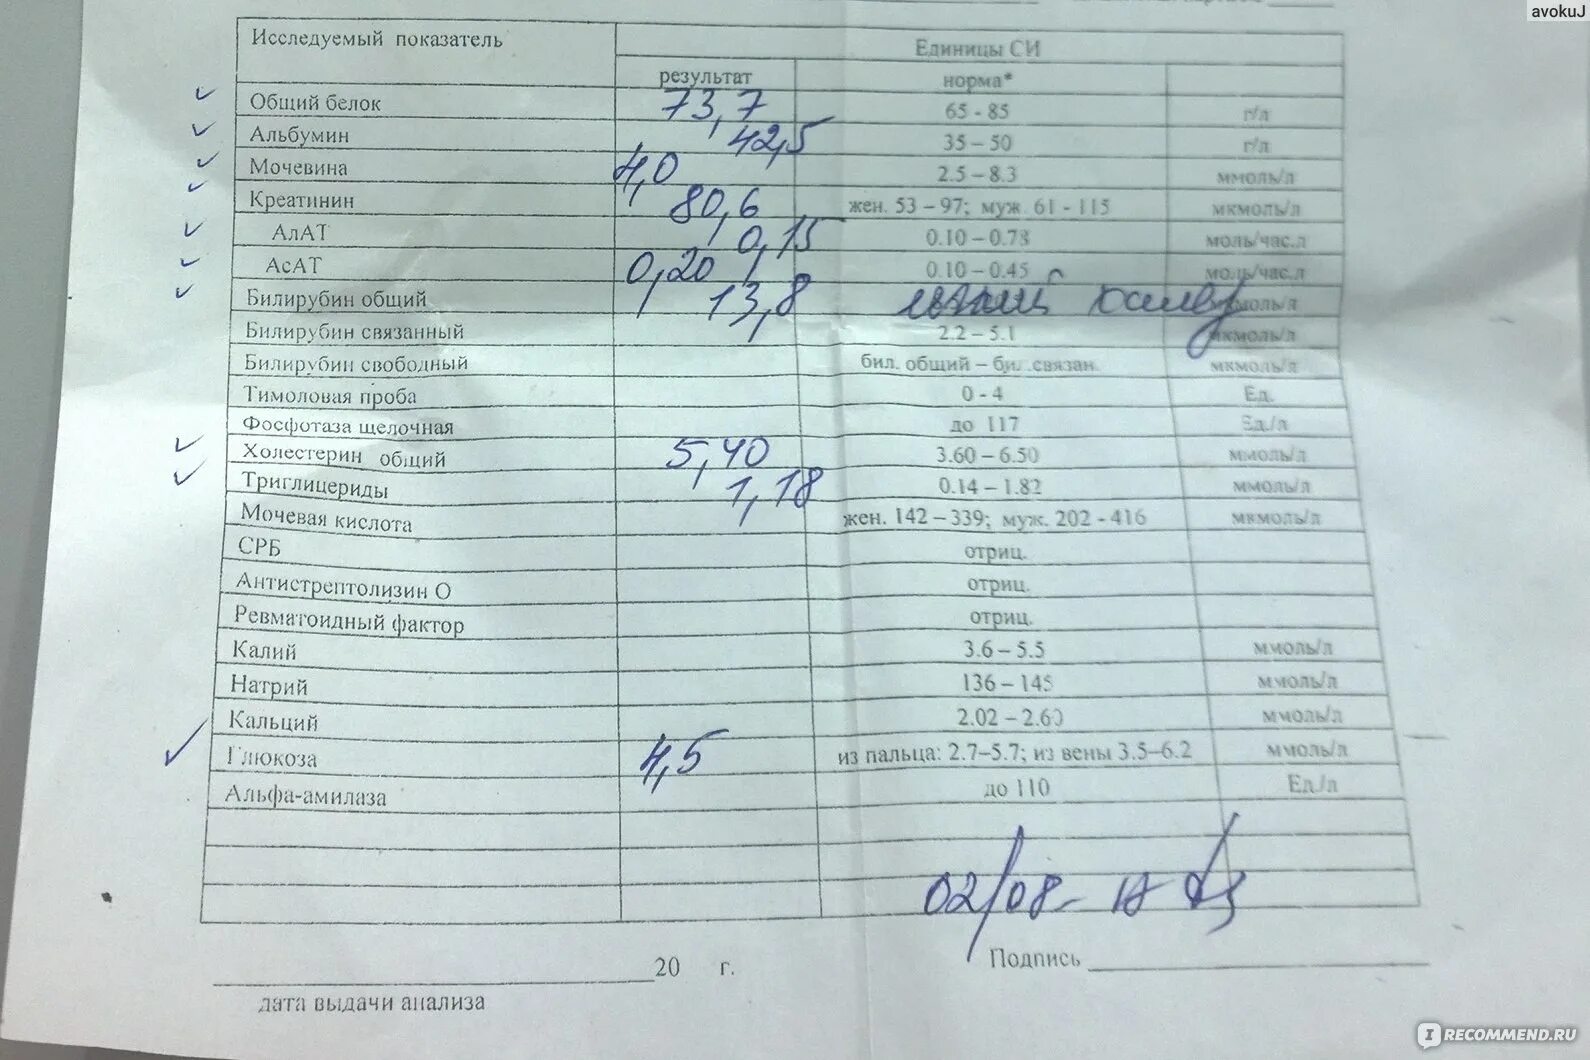 avokuJ
Исследуемый показатель Единицы СИ
результат норма*
Общий белок 73,7 65 - 85 г/л
Альбумин 42,5 35 – 50 г/л
Мочевина 4,0 2.5 – 8.3 ммоль/л
Креатинин 80,6 жен. 53 – 97; муж. 61 - 115 мкмоль/л
АлАТ 0,15 0.10 – 0.73 моль/час.л
АсАТ 0,20 0.10 – 0.45 моль/час.л
Билирубин общий 13,8 мкмоль/л
Билирубин связанный 2.2 – 5.1 мкмоль/л
Билирубин свободный бил. общий – бил. связан. мкмоль/л
Тимоловая проба 0 - 4 Ед.
Фосфотаза щелочная до 117 Ед./л
Холестерин общий 5,40 3.60 – 6.50 ммоль/л
Триглицериды 1,18 0.14 – 1.82 ммоль/л
Мочевая кислота жен. 142 – 339; муж. 202 - 416 мкмоль/л
СРБ отриц.
Антистрептолизин О отриц.
Ревматоидный фактор отриц.
Калий 3.6 – 5.5 ммоль/л
Натрий 136 – 145 ммоль/л
Кальций 2.02 – 2.60 ммоль/л
Глюкоза 4,5 из пальца: 2.7–5.7; из вены 3.5–6.2 ммоль/л
Альфа-амилаза до 110 Ед/л
02/08-
20 г. Подпись
дата выдачи анализа
IRECOMMEND.RU